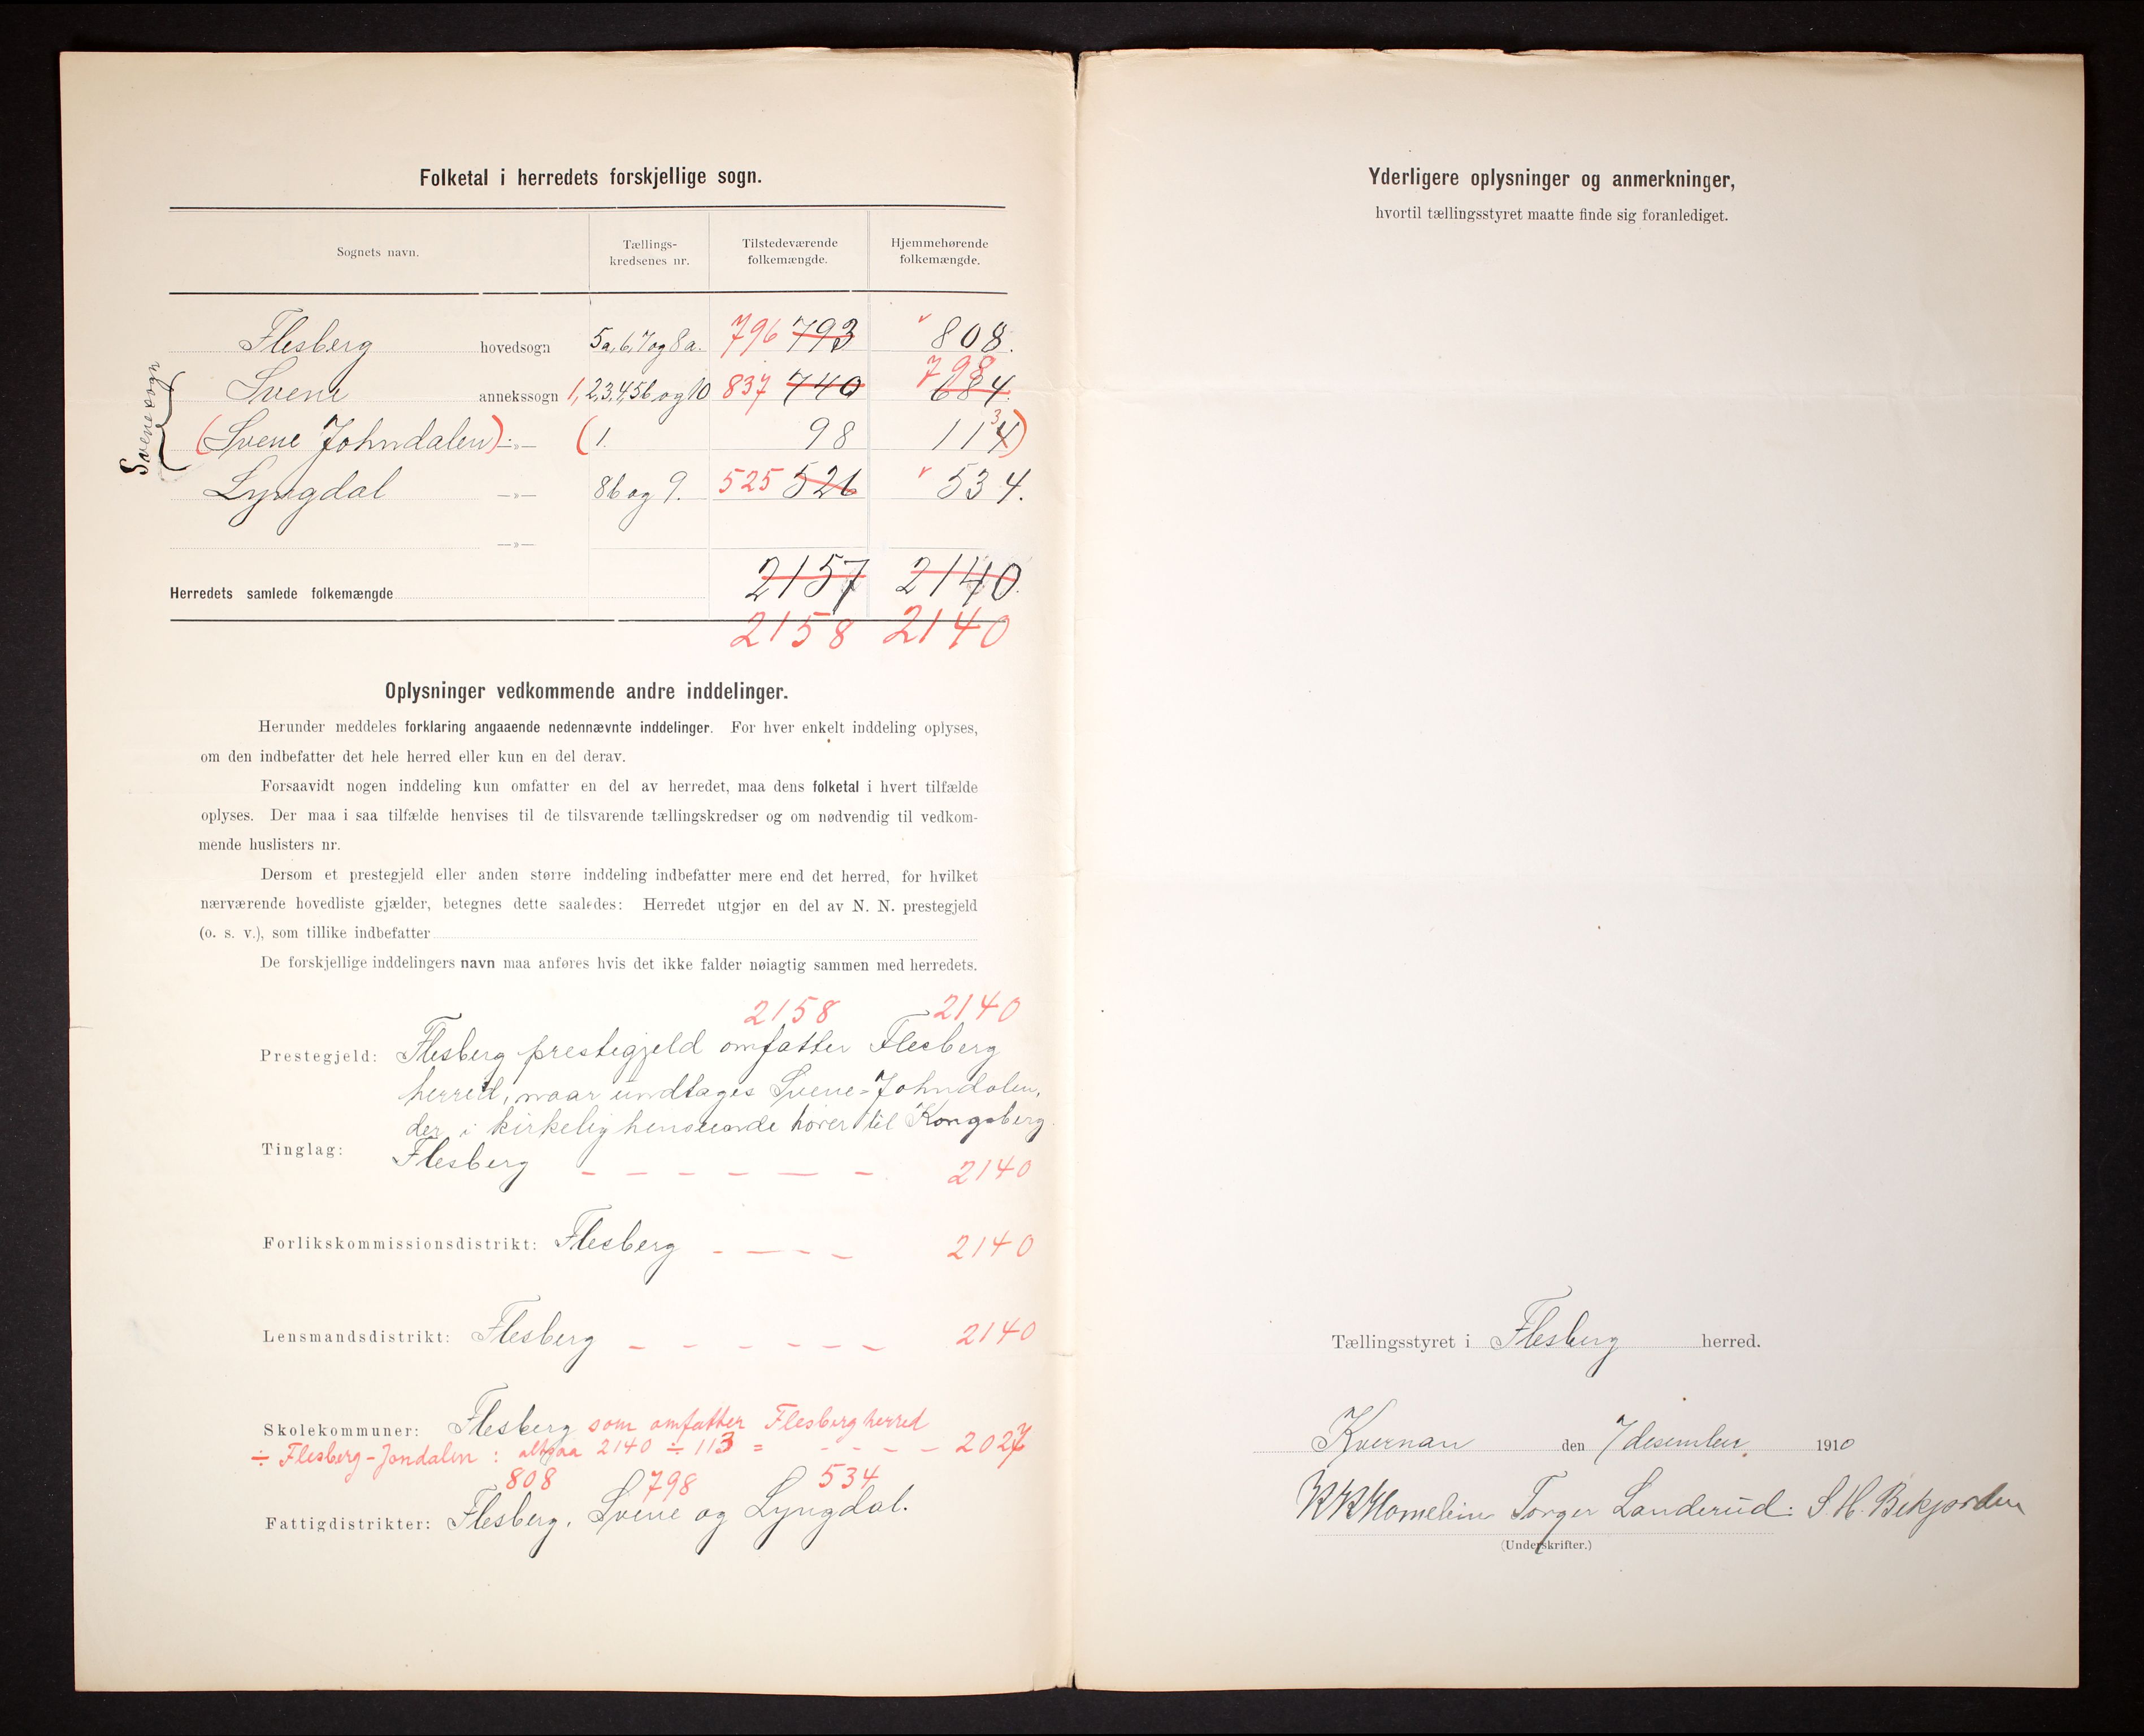 Folketal i herredets forskjellige sogn.
Sognets navn. Tællings-kredsenes nr. Tilstedeværende folkemængde. Hjemmehørende folkemængde.
Flesberg hovedsogn 5a, 6, 7 og 8a. 796 793 808.
798
Svene annekssogn 1, 2,3,4,5b og 10 837 740 684
Svenesogn
(Svene Johndalen) —»— (1. 98 114 3)
Lyngdal —»— 8b og 9. 525 526 534.
—»—
Herredets samlede folkemængde 2157 2140.
2158 2140
Oplysninger vedkommende andre inddelinger.
Herunder meddeles forklaring angaaende nedennævnte inddelinger. For hver enkelt inddeling oplyses,
om den indbefatter det hele herred eller kun en del derav.
Forsaavidt nogen inddeling kun omfatter en del av herredet, maa dens folketal i hvert tilfælde
oplyses. Der maa i saa tilfælde henvises til de tilsvarende tællingskredser og om nødvendig til vedkom-
mende huslisters nr.
Dersom et prestegjeld eller anden større inddeling indbefatter mere end det herred, for hvilket
nærværende hovedliste gjælder, betegnes dette saaledes: Herredet utgjør en del av N. N. prestegjeld
(o. s. v.), som tillike indbefatter
De forskjellige inddelingers navn maa anføres hvis det ikke falder nøiagtig sammen med herredets.
2158 2140
Prestegjeld: Flesberg prestegjeld omfatter Flesberg
herred, naar undtages Svene-Johndalen,
der i kirkelig henseende hører til Kongsberg.
Tinglag: Flesberg – – – – – – 2140
Forlikskommissionsdistrikt: Flesberg – – – – 2140
Lensmandsdistrikt: Flesberg – – – – – – 2140
Skolekommuner: Flesberg som omfatter Flesberg herred
÷ Flesberg-Jondalen : altsaa 2140 ÷ 113 = – – – – 2027
808 798 534
Fattigdistrikter: Flesberg, Svene og Lyngdal.
Yderligere oplysninger og anmerkninger,
hvortil tællingsstyret maatte finde sig foranlediget.
Tællingsstyret i Flesberg herred.
Kvernan den 7 desember. 1910
Torger Landerud. S. H. Bekjorden
(Underskrifter.)